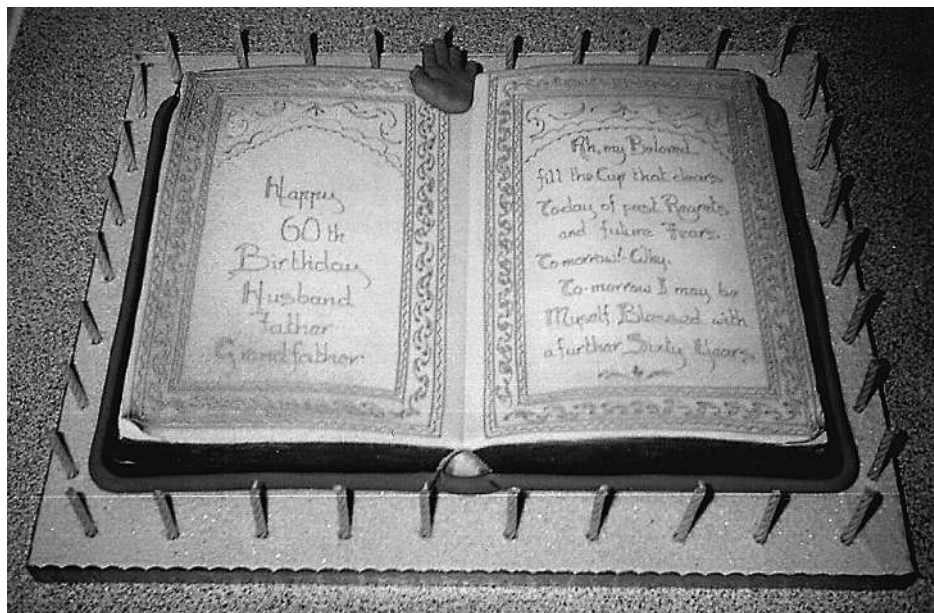 Happy
60th
Birthday
Husband
Father
Grandfather
Ah, my Beloved
fill the Cup that clears
Today of past Regrets
and future Fears
Tomorrow! - Why,
To-morrow I may be
Myself Blessed with
a further Sixty Years